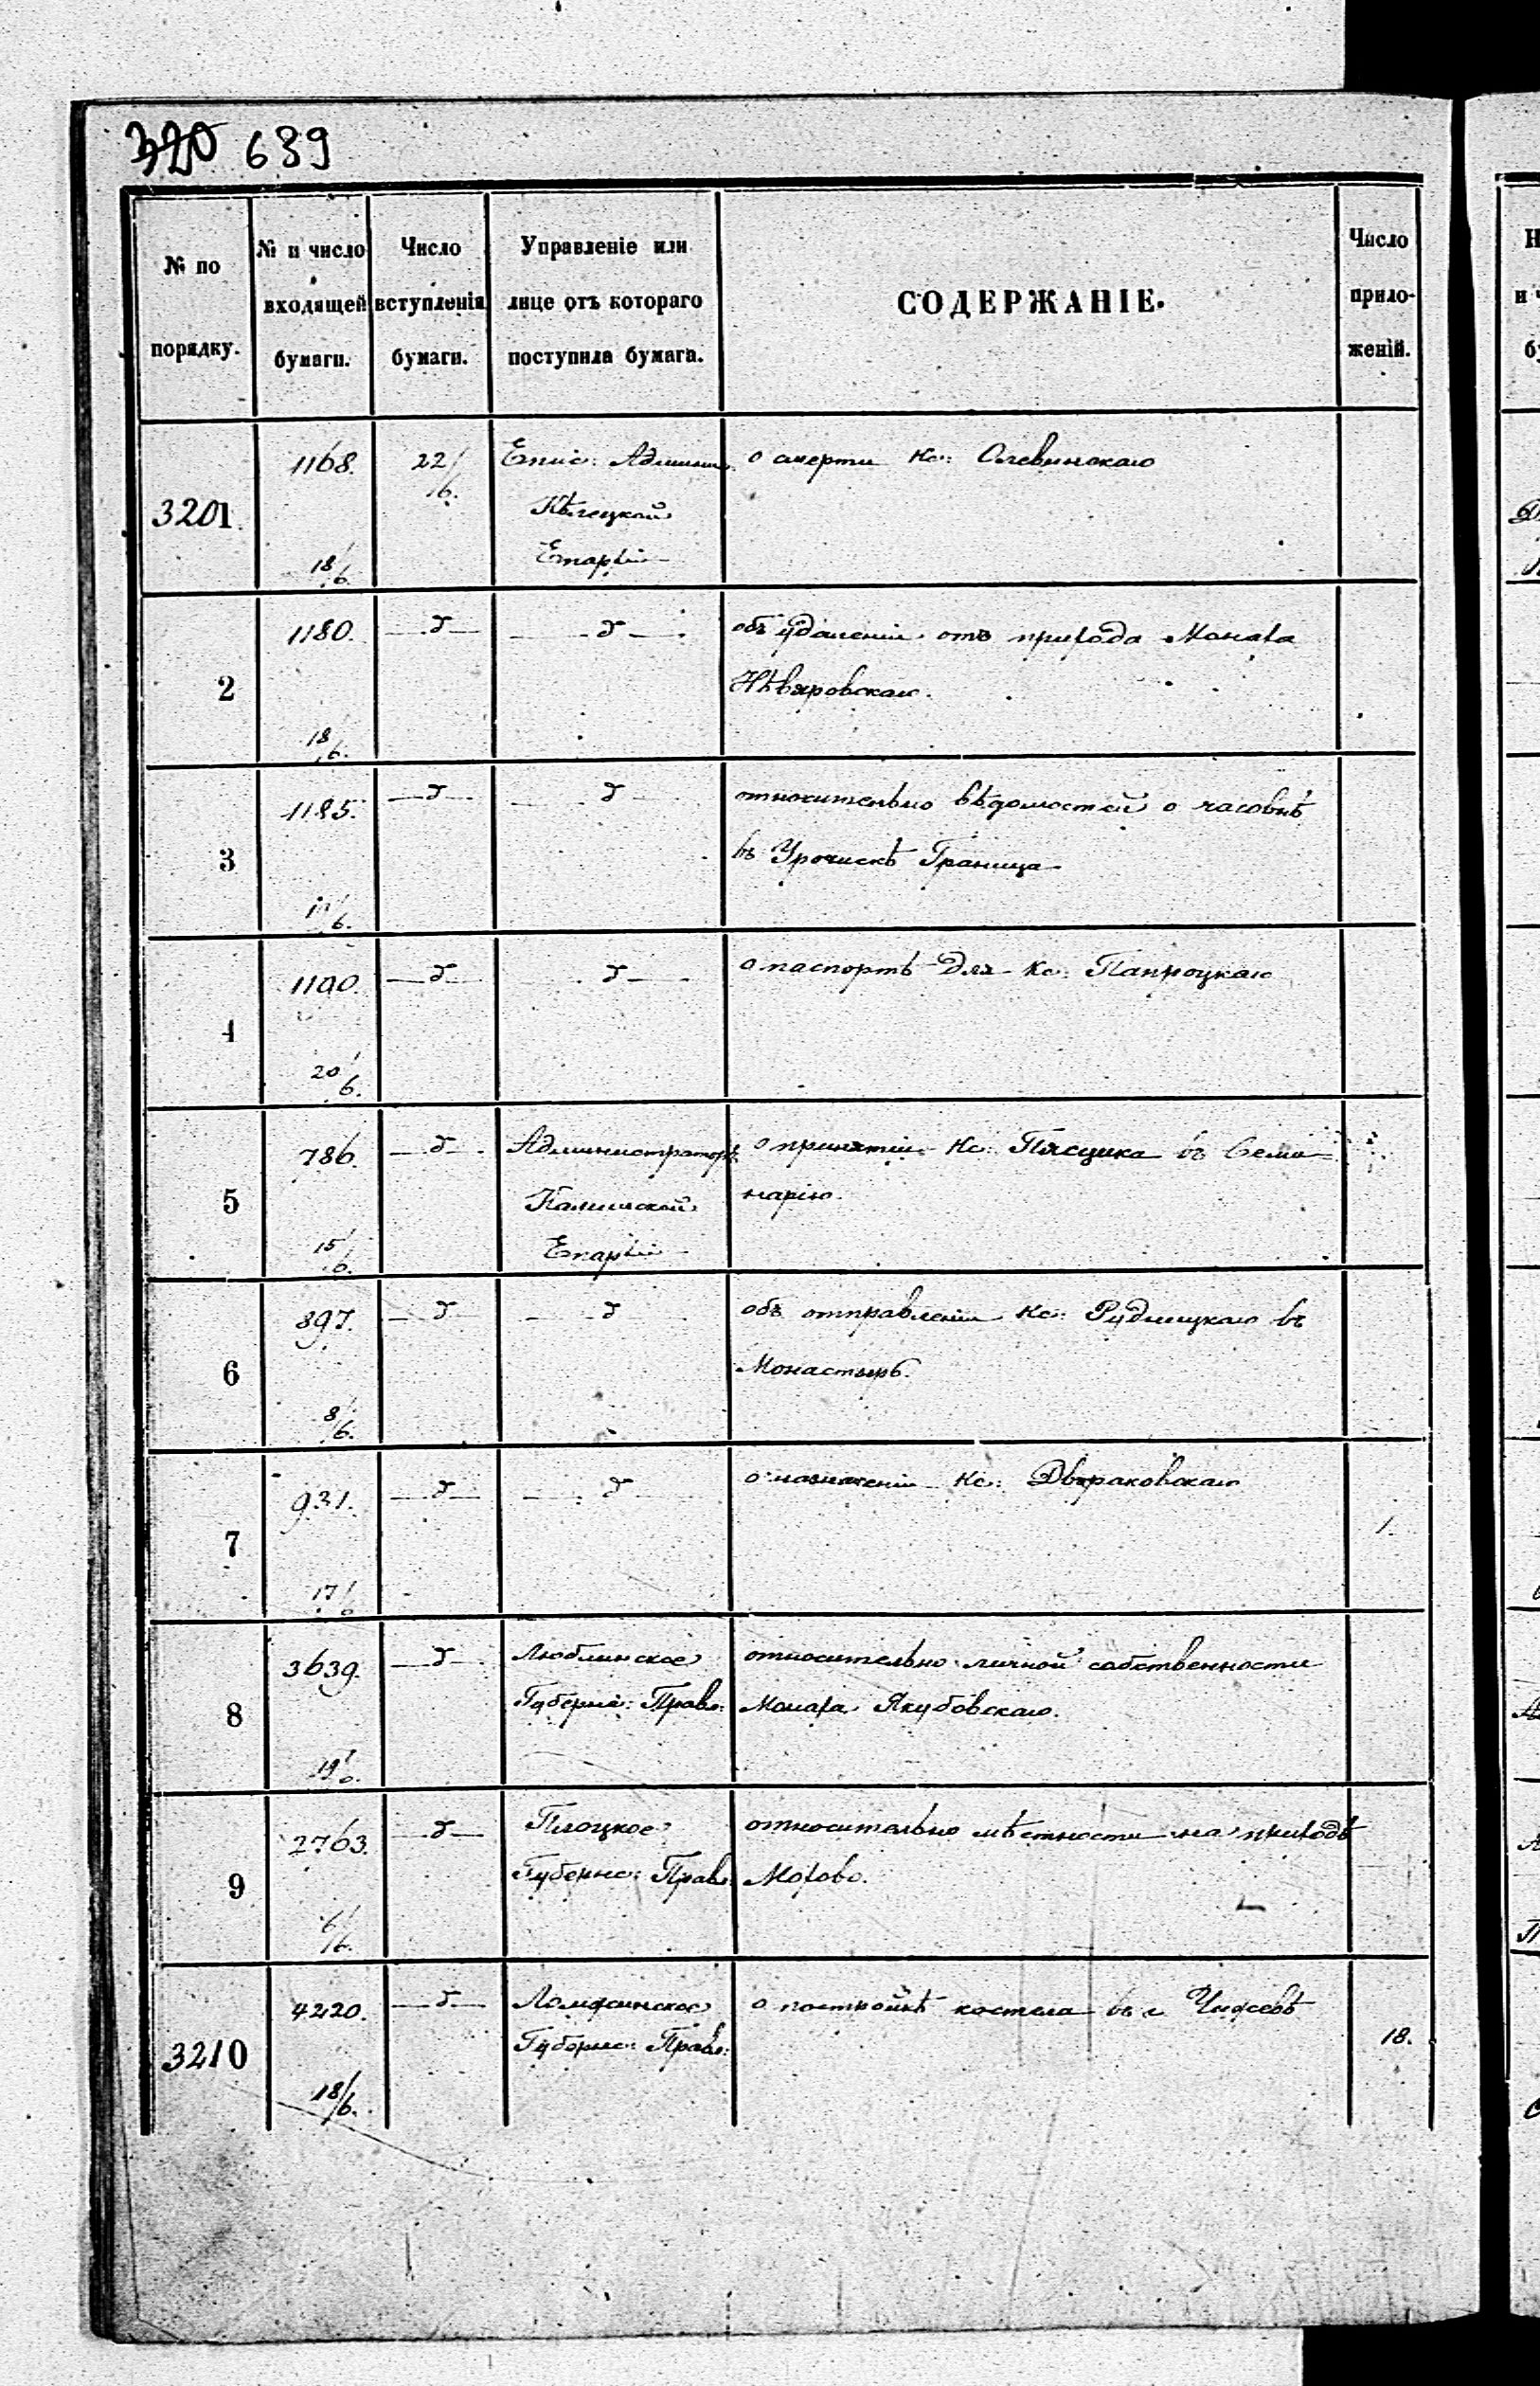 320 639
№ по порядку.
№ и число входящей бумаги.
Число вступленія бумаги.
Управленіе или лице отъ котораго поступила бумага.
СОДЕРЖАНІЕ.
Число приложеній.
3201 1168. 22/6. Епис: Админи: о смерти Кс: Олевинскаго
Кѣлецкой
18/6. Епархіи
2 1180. —d— —d— объ удаленіи отъ прихода Монаха
Нѣвяровскаго.
18/6.
3 1185. —d— —d— относительно вѣдомостей о часовнѣ
въ Урочискѣ Граница
4 1190. —d— —d— о паспортѣ для Кс: Папроцкаго
20/6.
5 786. —d— Администраторъ о принятіи Кс: Пясцика въ Семи-
Калишской нарію.
15/6. Епархіи
6 897. —d— —d— объ отправленіи Кс: Рудницкаго въ
Монастырь.
8/6.
7 931. —d— —d— о назначеніи Кс: Двораковскаго 1.
17/6
8 3639. —d— Люблинское относительно личной собственности
Губернс: Правл: Монаха Якубовскаго.
19/6.
9 2763. —d— Плоцкое относительно мѣстности на приходѣ
Губернс: Правл: Мохово.
6/6.
3210 4220. —d— Ломжинское о постройкѣ костела въ с Чижевѣ 18.
Губернс: Правл:
18/6.